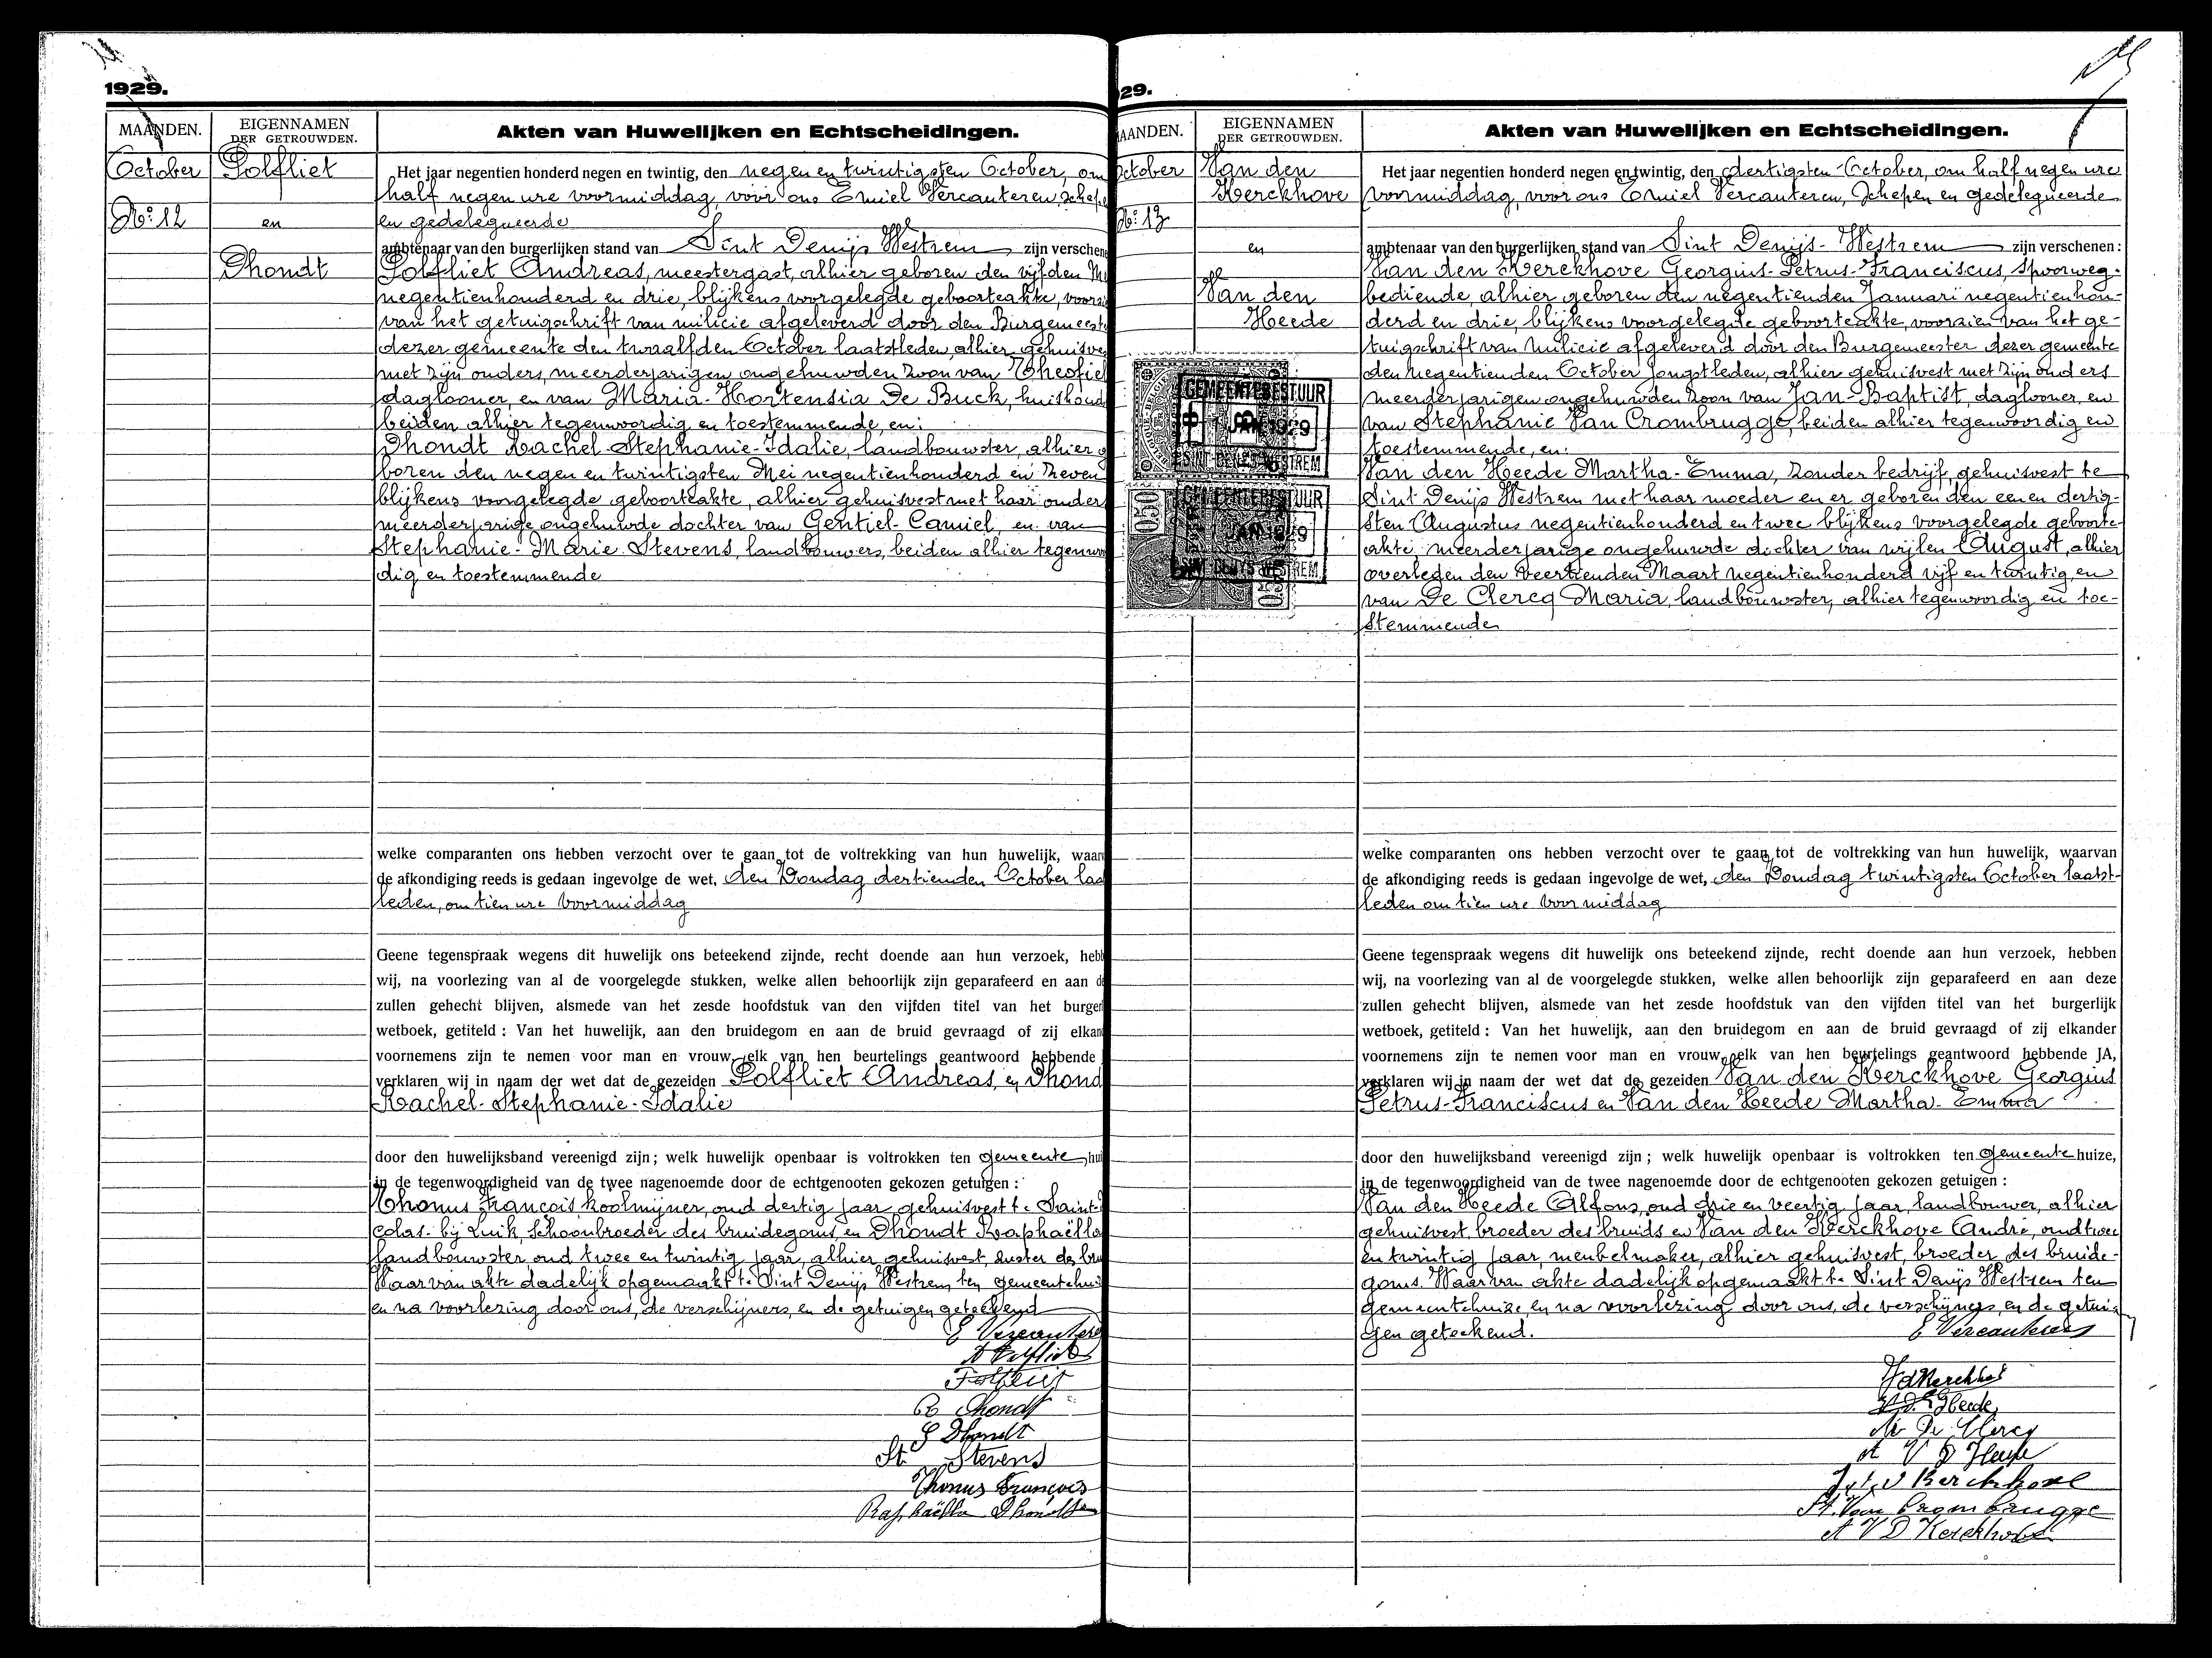 1929.
MAANDEN.
EIGENNAMEN
DER GETROUWDEN.
Akten van Huwelijken en Echtscheidingen.
October
Polfliet
No: 12
en
Dhondt
Het jaar negentien honderd negen en twintig, den negen en twintigsten October, om
half negen ure voormiddag, voor ons Emiel Vercauteren, schepe
en gedelegueerde
ambtenaar van den burgerlijken stand van Sint Denijs Westrem zijn verschene
Polfliet Andreas, meestergast, alhier geboren den vijfden M
negentienhonderd en drie, blijkens voorgelegde geboorteakte, voorzi
van het getuigschrift van milicie afgeleverd door den Burgemeest
dezer gemeente den twaalfden October laatstleden, alhier gehuisve
met zijn ouders, meerderjarigen ongehuwden zoon van Theofiel
daglooner, en van Maria-Hortensia De Buck, huishoud
beiden alhier tegenwoordig en toestemmende, en:
Dhondt Rachel-Stephanie-Idalie, landbouwster, alhier g
boren den negen en twintigsten Mei negentienhonderd en zeven
blijkens voorgelegde geboorteakte, alhier gehuisvest met haar ouder
meerderjarige ongehuwde dochter van Gentiel-Camiel, en van
Stephanie-Marie Stevens, landbouwers, beiden alhier tegenwo
dig en toestemmende
welke comparanten ons hebben verzocht over te gaan tot de voltrekking van hun huwelijk, waar
de afkondiging reeds is gedaan ingevolge de wet, den Zondag dertienden October laa
leden, om tien ure voormiddag
Geene tegenspraak wegens dit huwelijk ons beteekend zijnde, recht doende aan hun verzoek, hebb
wij, na voorlezing van al de voorgelegde stukken, welke allen behoorlijk zijn geparafeerd en aan d
zullen gehecht blijven, alsmede van het zesde hoofdstuk van den vijfden titel van het burger
wetboek, getiteld : Van het huwelijk, aan den bruidegom en aan de bruid gevraagd of zij elkan
voornemens zijn te nemen voor man en vrouw, elk van hen beurtelings geantwoord hebbende
verklaren wij in naam der wet dat de gezeiden Polfliet Andreas, en Dhond
Rachel-Stephanie-Idalie
door den huwelijksband vereenigd zijn ; welk huwelijk openbaar is voltrokken ten gemeente hui
in de tegenwoordigheid van de twee nagenoemde door de echtgenooten gekozen getuigen :
Thonus François koolmijner, oud dertig jaar gehuisvest te Saint-
colas-bij Luik, schoonbroeder des bruidegoms, en Dhondt Raphaëlla
landbouwster, oud twee en twintig jaar, alhier gehuisvest, zuster der bru
Waarvan akte dadelijk opgemaakt te Sint Denijs Westrem, ten gemeentehui
en na voorlezing door ons, de verschijners, en de getuigen geteekend
E Vercautere
A Polfliet
T Polfliet
R Dhondt
G Dhondt
St. Stevens
Thonus François
Raphaëlla Dhondt
29.
MAANDEN.
EIGENNAMEN
DER GETROUWDEN.
Akten van Huwelijken en Echtscheidingen.
October
Van den
Kerckhove
No: 13
en
Van den
Heede
GEMEENTEBESTUUR
JAN 1929
SINT DENIJS WESTREM
GEMEENTEBESTUUR
JAN 1929
SINT DENIJS WESTREM
0.50
0.50
Het jaar negentien honderd negen en twintig, den dertigsten October, om half negen ure
voormiddag, voor ons Emiel Vercauteren, Schepen en gedelegueerde
ambtenaar van den burgerlijken stand van Sint Denijs-Westrem zijn verschenen :
Van den Kerckhove Georgius-Petrus-Franciscus, spoorweg-
bediende, alhier geboren den negentienden Januari negentienhon-
derd en drie, blijkens voorgelegde geboorteakte, voorzien van het ge-
tuigschrift van milicie afgeleverd door den Burgemeester dezer gemeente
den negentienden October jongstleden, alhier gehuisvest met zijn ouders
meerderjarigen ongehuwden zoon van Jan-Baptist, daglooner, en
van Stephanie Van Crombrugge, beiden alhier tegenwoordig en
toestemmende, en:
Van den Heede Martha-Emma, zonder bedrijf, gehuisvest te
Sint Denijs Westrem met haar moeder en er geboren den een en dertig-
sten Augustus negentienhonderd en twee blijkens voorgelegde geboorte-
akte, meerderjarige ongehuwde dochter van wijlen August, alhier
overleden den veertienden Maart negentienhonderd vijf en twintig, en
van De Clercq Maria, landbouwster, alhier tegenwoordig en toe-
stemmende
welke comparanten ons hebben verzocht over te gaan tot de voltrekking van hun huwelijk, waarvan
de afkondiging reeds is gedaan ingevolge de wet, den Zondag twintigsten October laatst-
leden om tien ure voormiddag
Geene tegenspraak wegens dit huwelijk ons beteekend zijnde, recht doende aan hun verzoek, hebben
wij, na voorlezing van al de voorgelegde stukken, welke allen behoorlijk zijn geparafeerd en aan deze
zullen gehecht blijven, alsmede van het zesde hoofdstuk van den vijfden titel van het burgerlijk
wetboek, getiteld : Van het huwelijk, aan den bruidegom en aan de bruid gevraagd of zij elkander
voornemens zijn te nemen voor man en vrouw, elk van hen beurtelings geantwoord hebbende JA,
verklaren wij in naam der wet dat de gezeiden Van den Kerckhove Georgius
Petrus-Franciscus en Van den Heede Martha-Emma
door den huwelijksband vereenigd zijn ; welk huwelijk openbaar is voltrokken ten gemeente huize,
in de tegenwoordigheid van de twee nagenoemde door de echtgenooten gekozen getuigen :
Van den Heede Alfons, oud drie en veertig jaar, landbouwer, alhier
gehuisvest, broeder des bruids en Van den Kerckhove André, oud twee
en twintig jaar, meubelmaker, alhier gehuisvest, broeder des bruide-
goms. Waarvan akte dadelijk opgemaakt te Sint Denijs Westrem ten
gemeentehuize, en na voorlezing door ons, de verschijners, en de getui-
gen geteekend.
E Vercauteren
VdKerckhove
V.D. Heede
M De Clercq
A V D Heede
J.b. V Kerckhove
St. Van Crombrugge
A V D Kerckhove